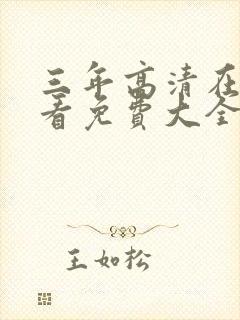 三年高清在
看免费大全
王如松